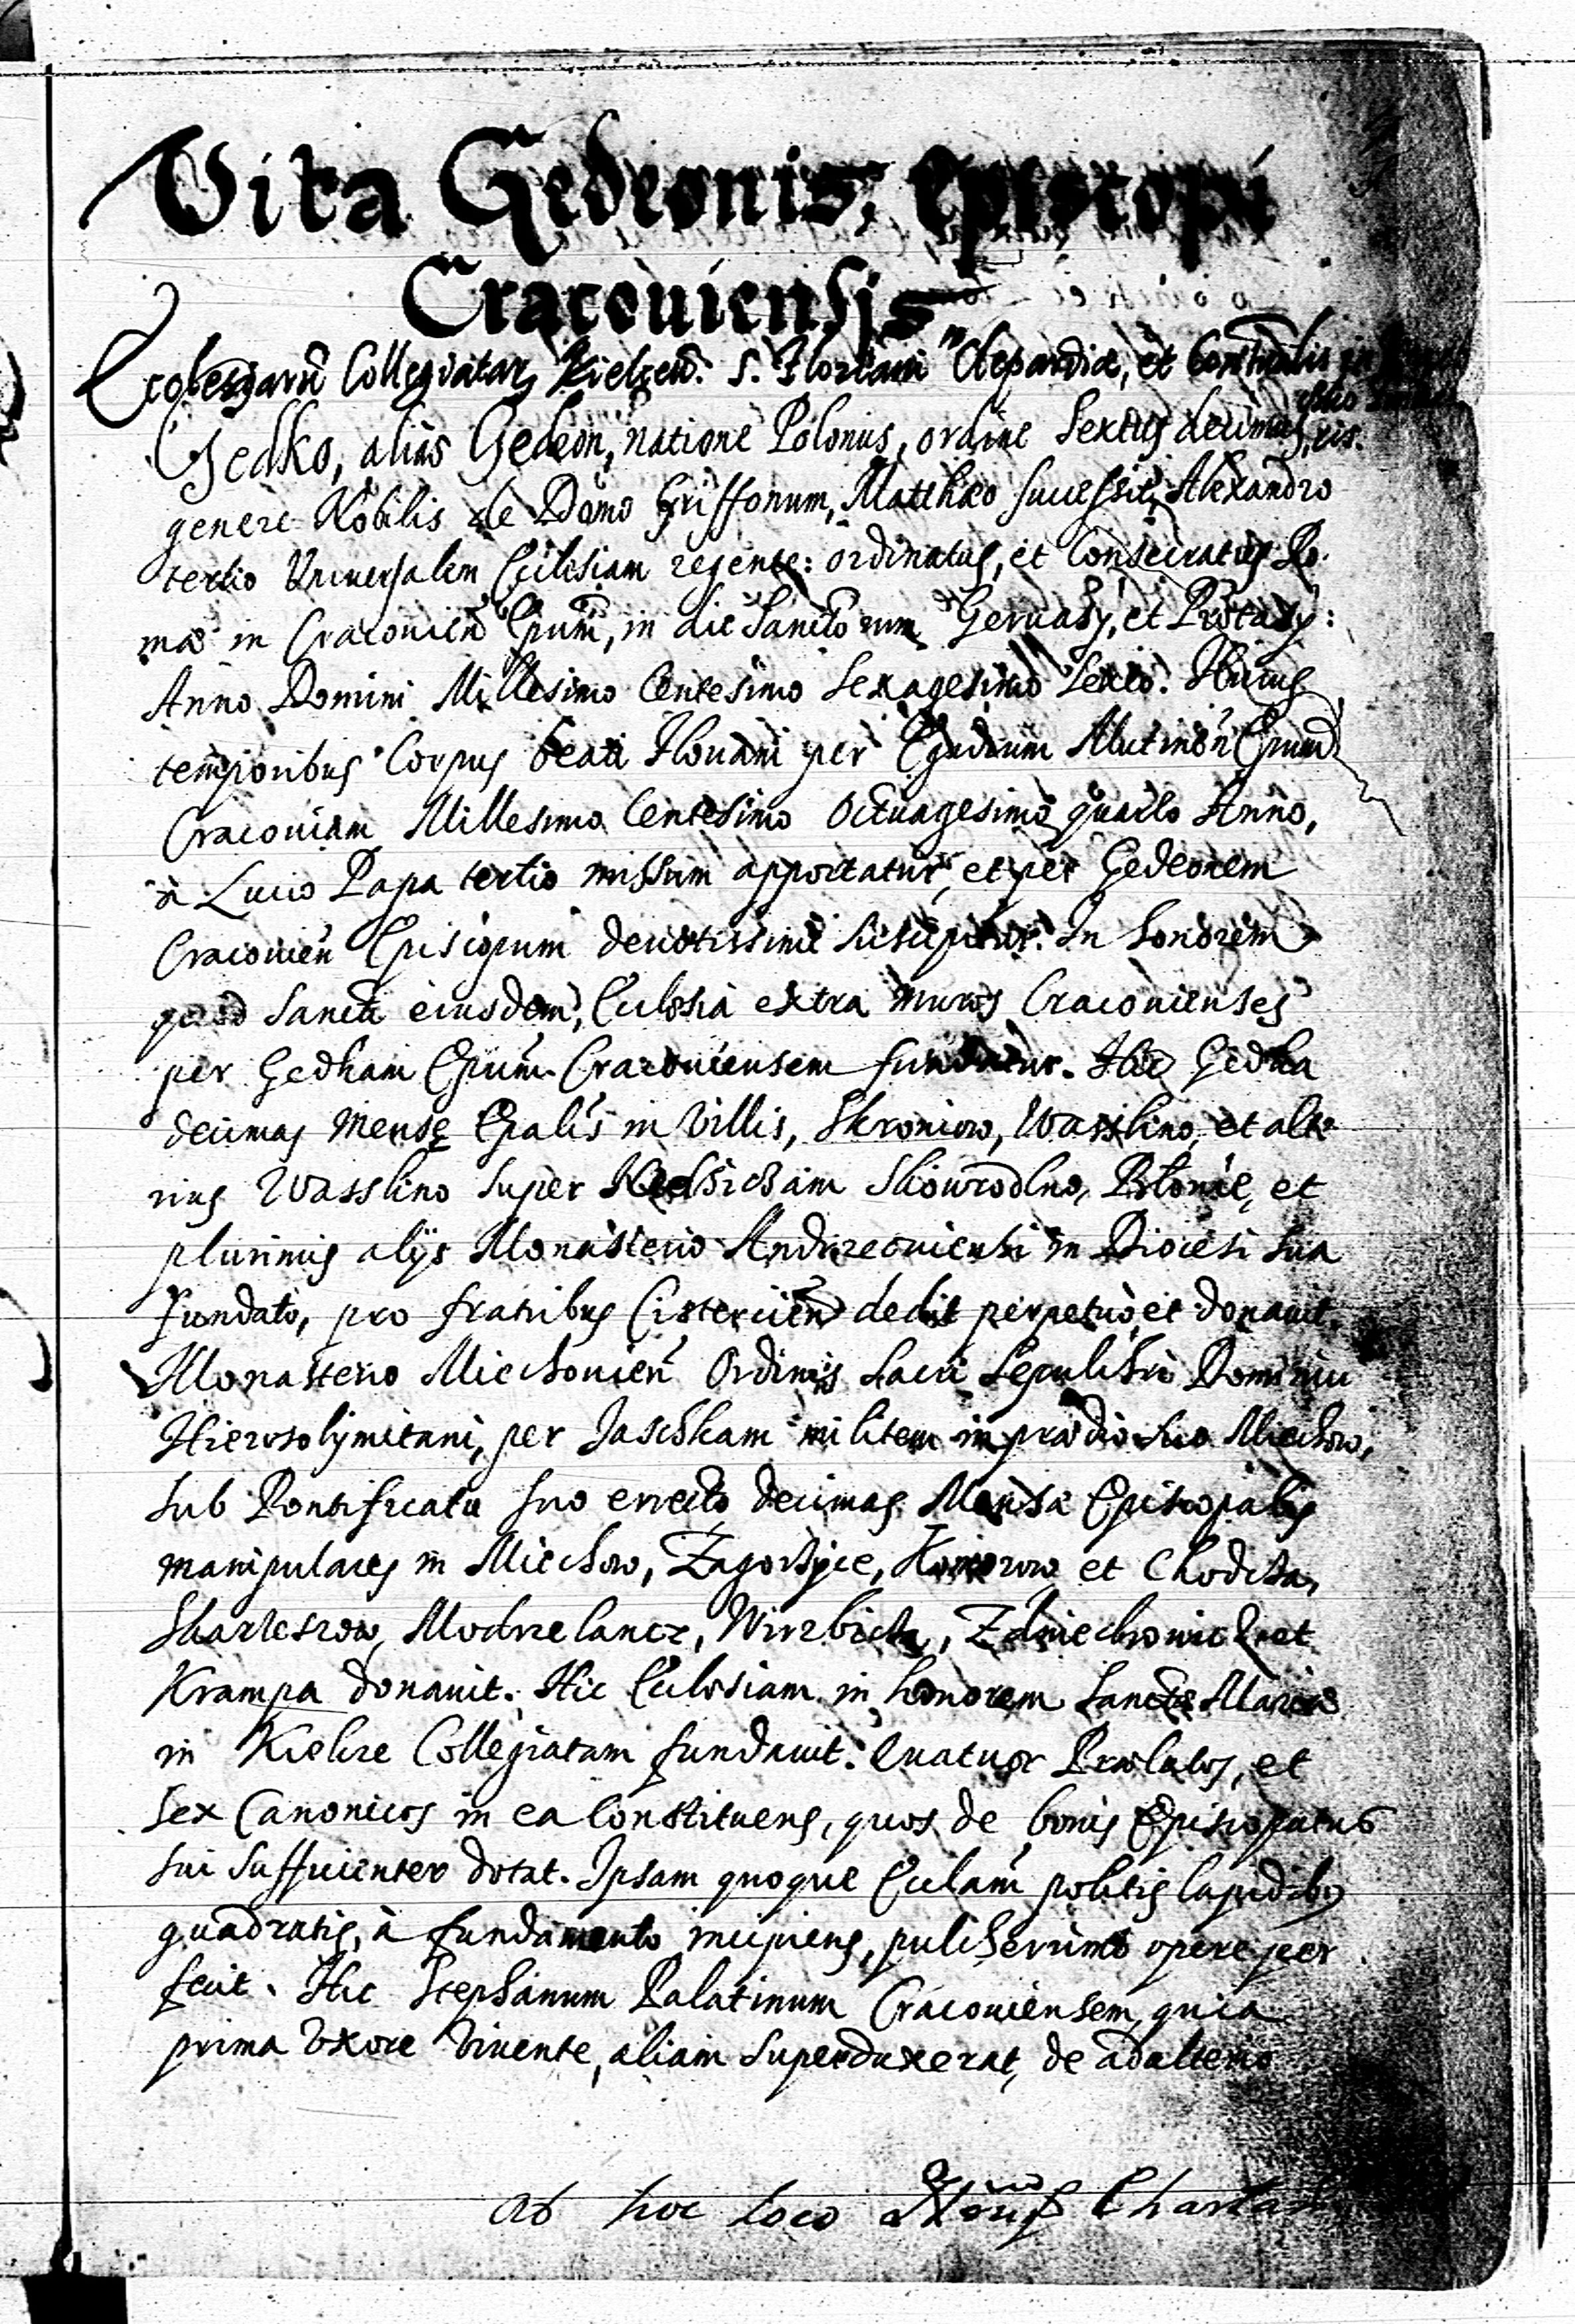 Vita Gedeonis, Episcopi
Cracouiensis
Ecclesiarū Collegiatarʒ Kielcen̄. S. Floriani Clepardiæ, et
Gedko, aliàs Gedeon, natione Polonus, ordine Sextus decimus,
genere Nobilis de Domo Griffonum, Matthæo successit, Alexandro
tertio Vniuersalem Ecclesiam regente: ordinatus, et Consecratus Ro
mæ in Cracouien̄ Epum̄, in die Sanctorum Geruasÿ, et Protasÿ:
Anno Domini Millesimo Centesimo Sexagesimo Sexto. Huius
temporibus Corpus beati Floriani per Egidium Mutinen̄ Epum
Cracouiam Millesimo Centesimo Octuagesimo quarto Anno,
à Lucio Papa tertio missum apportatur, et per Gedeonem
Cracouien̄ Episcopum deuotissime suscipitur. In honorem
quod Sancti eiusdem, Ecclesia extra muros Cracouienses
per Gedkam Epum̄ Cracouiensem fundatur. Hic Gedka
decimas Mensę Epalis in Villis, Skroniow, Wasslino, et alte
rius Wasslino super Skowrodlno, et
plurimis alijs Monasterio Andrzeouiensi in Diocesi sua
fundato, pro fratribus Cistercien̄ dedit perpetuò et donauit.
Monasterio Miechouien̄ Ordinis Sacri Sepulchri Dominici
Hierosolymitani, per Jaschkam militem in prædio suo Miechow,
sub Pontificatu suo erecto decimas Mensæ Episcopalis
manipulares in Miechow, Zagorzÿce, Komorow et Chodcza,
Skarleszow, Modrzelancz, Wirzbicza, et
Krampa donauit. Hic Ecclesiam in honorem Sanctæ Mariæ
in Kielze Collegiatam fundauit. Quatuor Prælatos, et
Sex Canonicos in ea Constituens, quos de bonis Episcopatus
sui sufficienter dotat. Ipsam quoque Eccl̄am politis lapidibꝯ
quadratis, à fundamento incipiens, pulcherrimo opere per
fecit. Hic Stephanum Palatinum Cracouiensem, quia
prima Vxore viuente, aliam superduxerat, de adulterio
Ab hoc loco Chartas